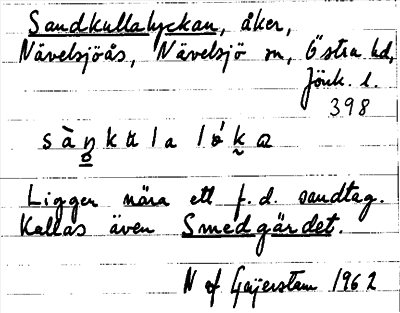 Sandkullalyckan, åker,
Nävelsjöås, Nävelsjö sn, Östra hd,
Jönk. l.
398
Ligger nära ett f.d. sandtag.
Kallas även Smedgärdet.
N af Geijerstam 1962